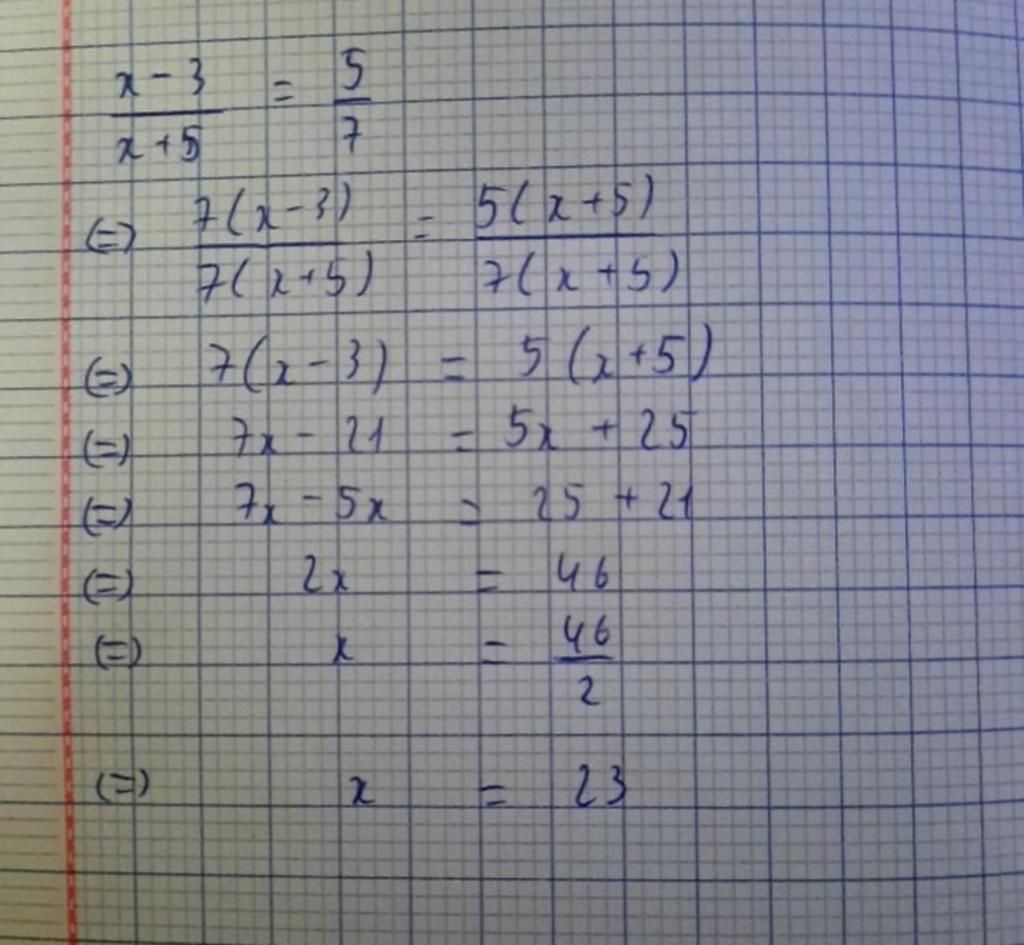 x - 3 / x + 5 = 5 / 7
(=) 7(x - 3) / 7(x + 5) = 5(x + 5) / 7(x + 5)
(=) 7(x - 3) = 5(x + 5)
(=) 7x - 21 = 5x + 25
(=) 7x - 5x = 25 + 21
(=) 2x = 46
(=) x = 46 / 2
(=) x = 23